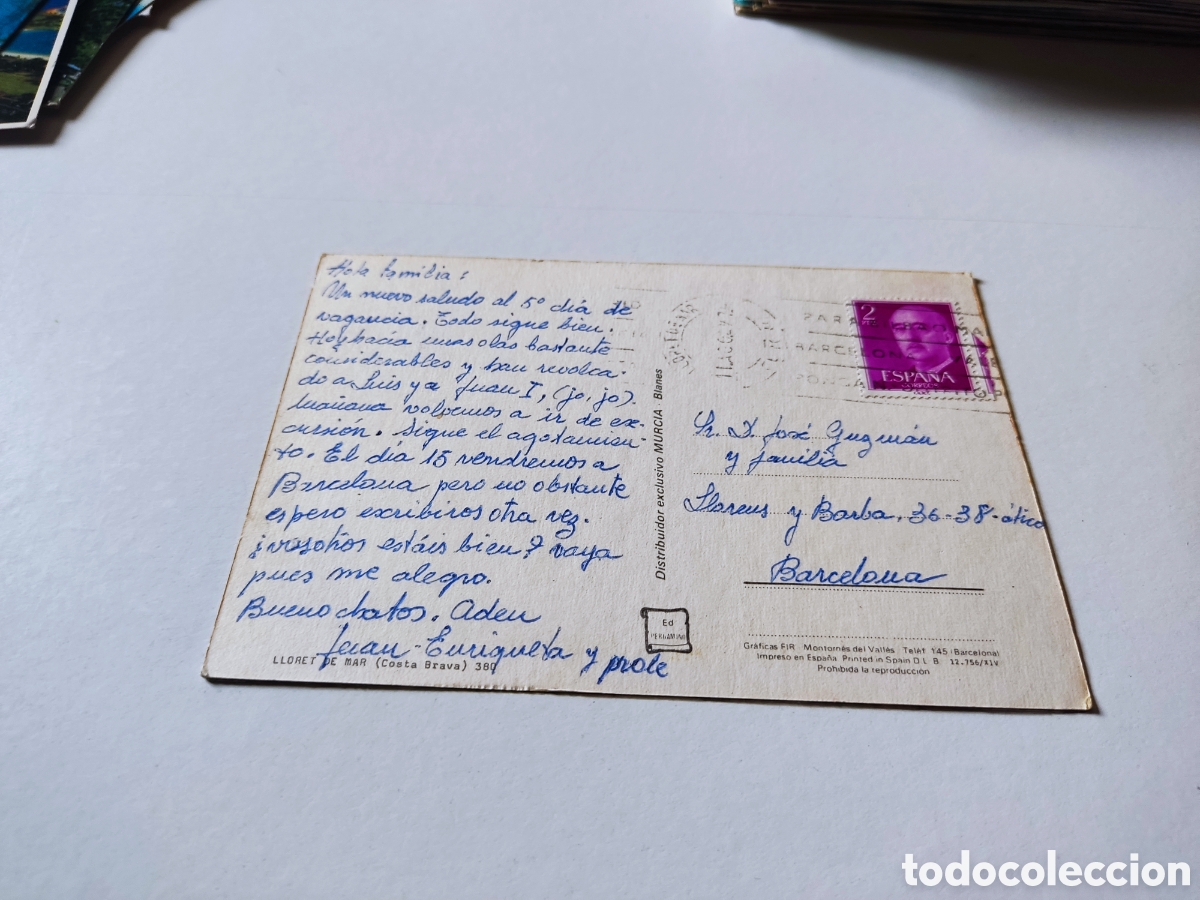 Hola familia:
Un nuevo saludo al 5º día de
vagancia. Todo sigue bien.
Hoy hacía unas olas bastante
considerables y han revolca-
do a Luis y a Juan I, (jo, jo).
Mañana volvemos a ir de ex-
cursión. Sigue el agotamien-
to. El día 15 vendremos a
Barcelona pero no obstante
espero escribiros otra vez.
¿vosotros estáis bien? vaya
pues me alegro.
Bueno chatos. Adeu
Juan-Enriqueta y prole
LLORET DE MAR (Costa Brava) 380
Distribuidor exclusivo MURCIA - Blanes
Ed
PERGAMINO
PARA
BARCELON
2
ESPAÑA
CORREOS
Sr. D. José Guzmán
y familia
Llorens y Barba, 36-38-ático
Barcelona
Gráficas FIR Montornés del Vallés Teléf 145 (Barcelona)
Impreso en España Printed in Spain D L B 12.756/XIV
Prohibida la reproducción
todocoleccion